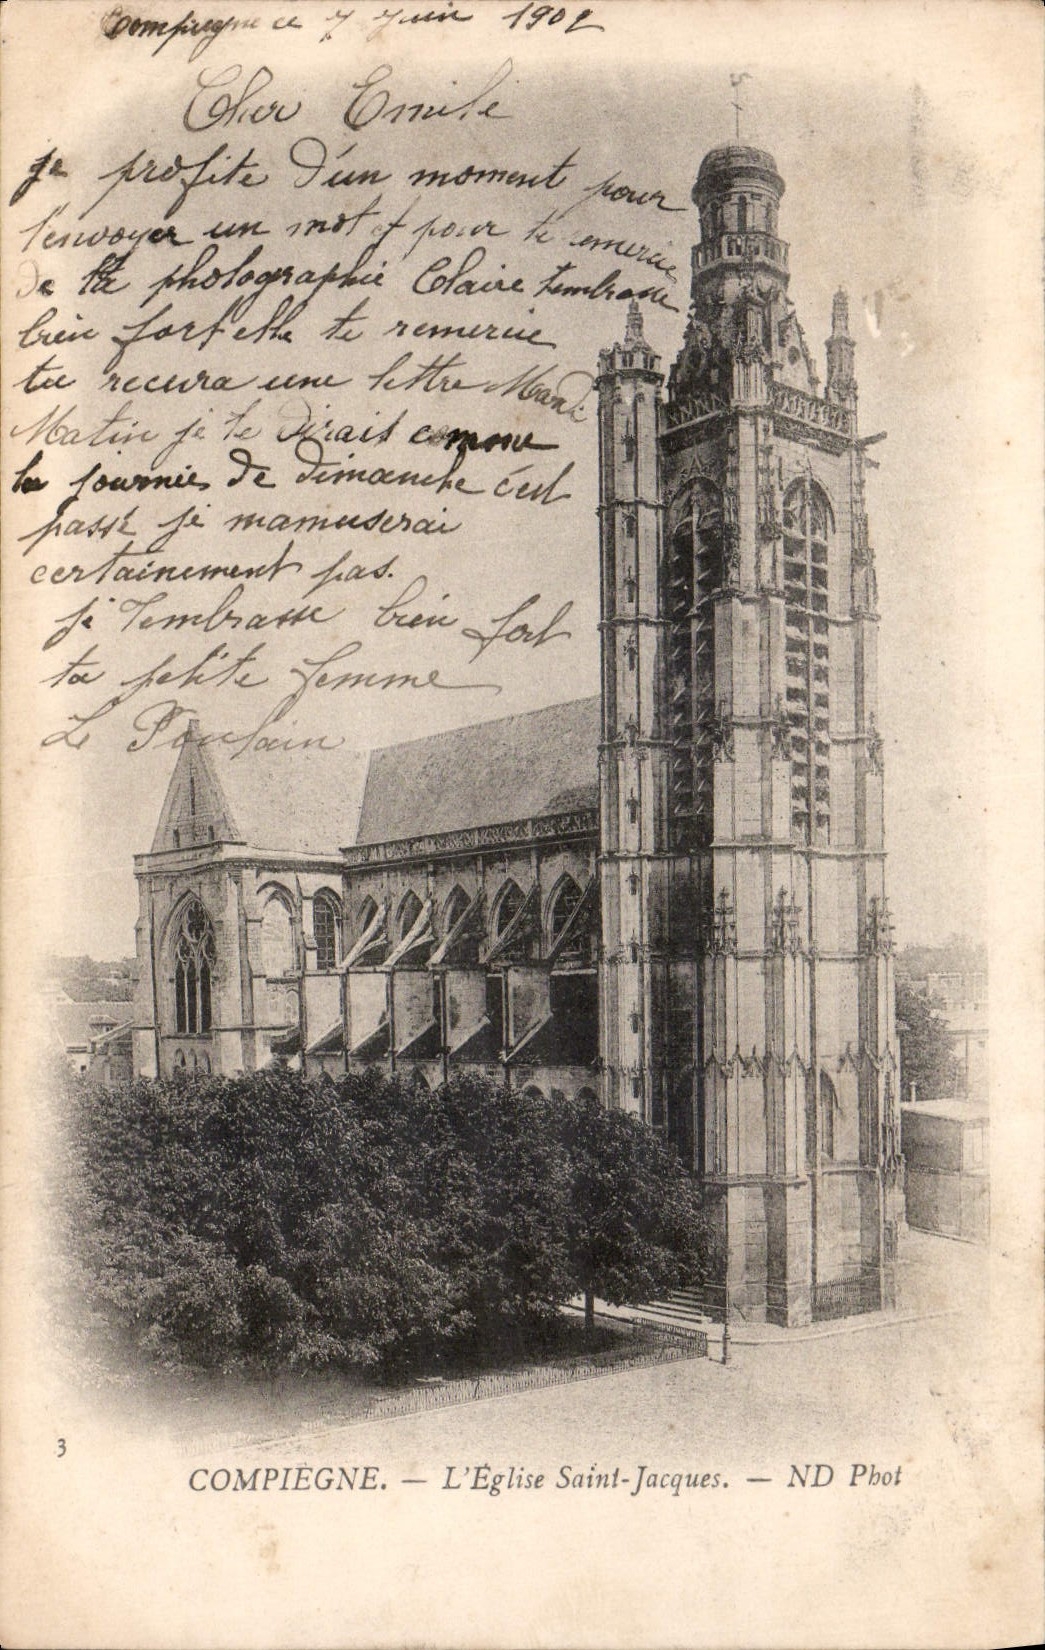 Compiegne ce 7 Juin 1902
Cher Emile
je profite d'un moment pour
t'envoyer un mot et pour te remercie
de ta photographie Claire t'embrasse
bien fort elle te remercie
tu recevra une lettre Mardi
Matin je te dirait comme
la journeé de dimanche c'est
passé je mamuserai
certainement pas.
je t'embrasse bien fort
ta petite femme
Le Poulain
3
COMPIÈGNE. — L'Église Saint-Jacques. — ND Phot